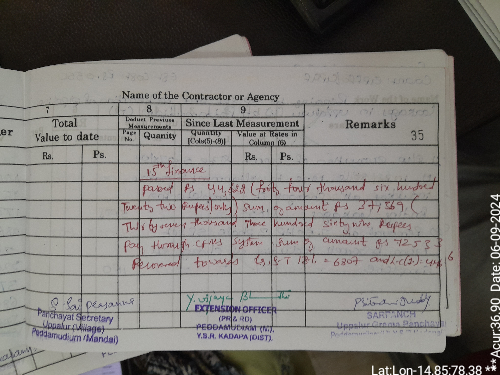 Name of the Contractor or Agency
7 8 9
Total Value to date
Deduct Previous Measurements
Since Last Measurement
Remarks
35
Page No.
Quantity
Quantity [Cols(5)-(8)]
Value at Rates in Column (6)
Rs. Ps. Rs. Ps.
15th finance
passed Rs 44,622 (forty four thousand six hundred
Twenty two Rupees only) sum of amount Rs 37,869 (
Thirty seven thousand Three hundred sixty nine Rupees
Pay through CFMS system sum of amount Rs 7253
towards
Panchayat Secretary
Uppalur (Village)
Peddamudium (Mandal)
EXTENSION OFFICER
(PR & RD)
PEDDAMUDIUM (M),
Y.S.R. KADAPA (DIST).
SARPANCH
Uppalur Grama Panchayat
Lat:Lon-14.85:78.38
**Acur:36.90 Date: 06-09-2024